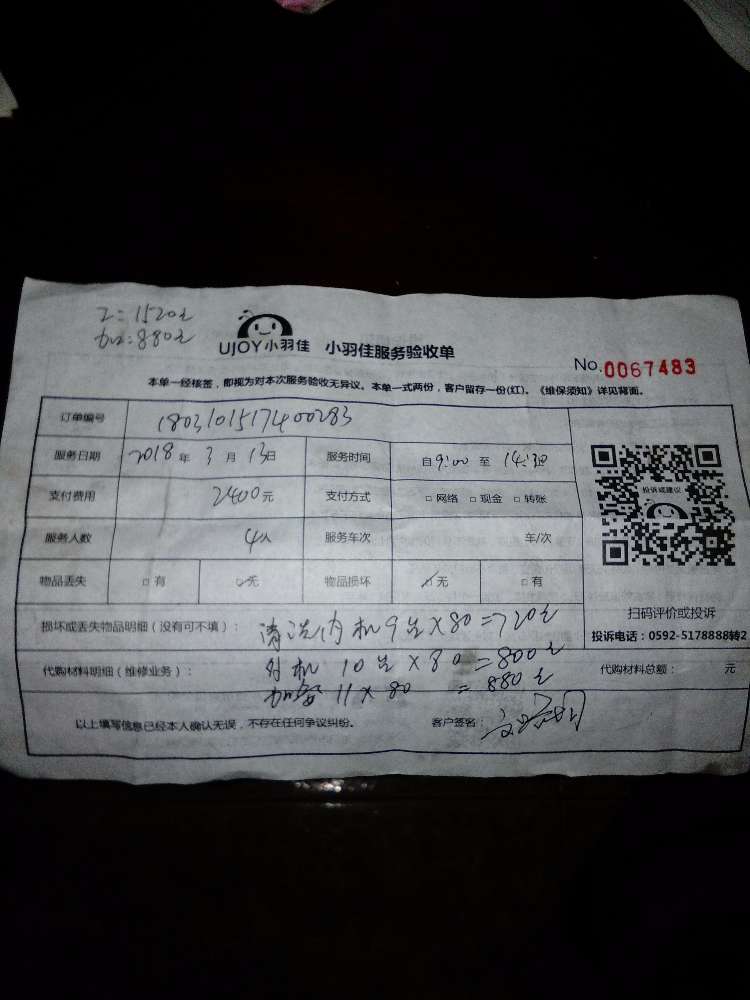 工=1520元
加工:880元
UJOY小羽佳 小羽佳服务验收单
No.0067483
本单一经核签,即视为对本次服务验收无异议。本单一式两份,客户留存一份(红)。《维保须知》详见背面。
订单编号 1803101517400283
服务日期 2018年3月13日 服务时间 自9:00至14:30
支付费用 2400元 支付方式 □网络 □现金 □转账
投诉或建议
服务人数 4人 服务车次 车/次
物品丢失 □有 □无 物品损坏 □无 □有
扫码评价或投诉
损坏或丢失物品明细(没有可不填): 清洗内机9台×80=720元
投诉电话:0592-5178888转2
代购材料明细(维修业务): 外机10台×80=800元 代购材料总额: 元
11×80=880元
以上填写信息已经本人确认无误,不存在任何争议纠纷。 客户签名: